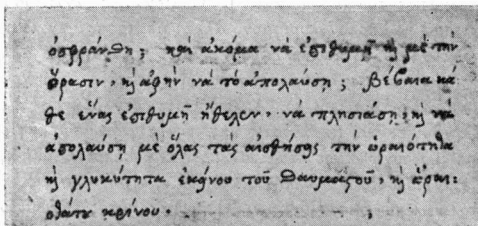 ὀσφράνθη; καὶ ἀκόμα νὰ ἐπιθυμῇ καὶ μὲ τὴν
ὅρασιν, καὶ ἁφὴν νὰ τὸ ἀπολαύσῃ; βέβαια κά-
θε ἕνας ἐπιθυμῇ ἤθελεν νὰ πλησιάσῃ, καὶ νὰ
ἀπολαύσῃ μὲ ὅλας τὰς αἰσθήσης τὴν ὡραιότητα
καὶ γλυκύτητα ἐκήνου τοῦ θαυμαςοῦ, καὶ ὡραι-
οτάτου κρήνου.